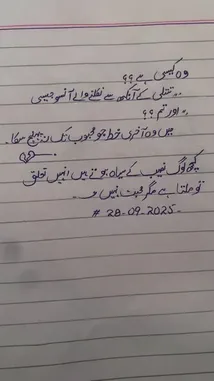 وہ کیسی ہے ؟؟
،، تتلی کے آنکھ سے نکلنے والے آنسو جیسی
،، اور تم ؟؟
میں وہ آخری خط جو محبوب تک نہ پہنچ سکا۔
کچھ لوگ نصیب کے سیاہ ہوتے ہیں انہیں تعلق
تو ملتا ہے مگر محبت نہیں
# 28-09-2025-